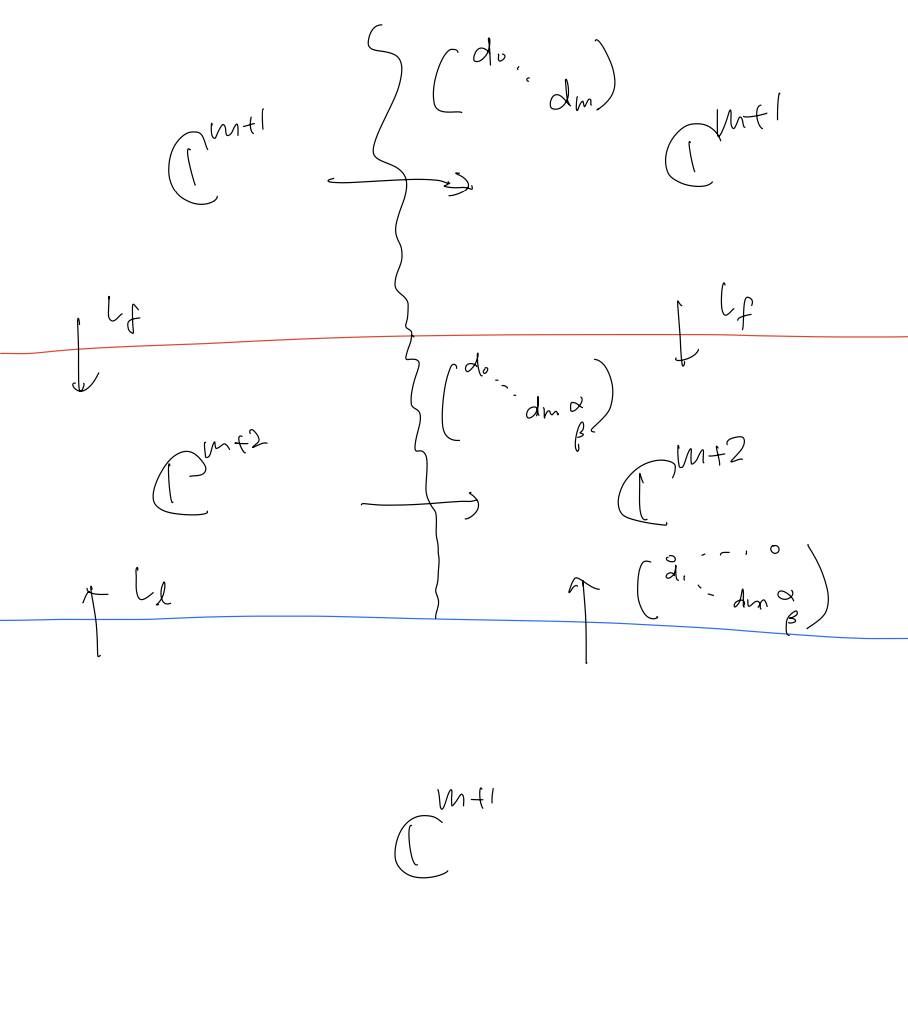 ( d₀ ⋱ dₘ )
ℂᵐ⁺¹ ℂᵐ⁺¹
L_f L_f
( d₀ ⋱ dₘ α
β )
ℂᵐ⁺² ℂᵐ⁺²
L_l ( 0 ⋯ 0
d₁ ⋱ dₘ α
β )
ℂᵐ⁺¹